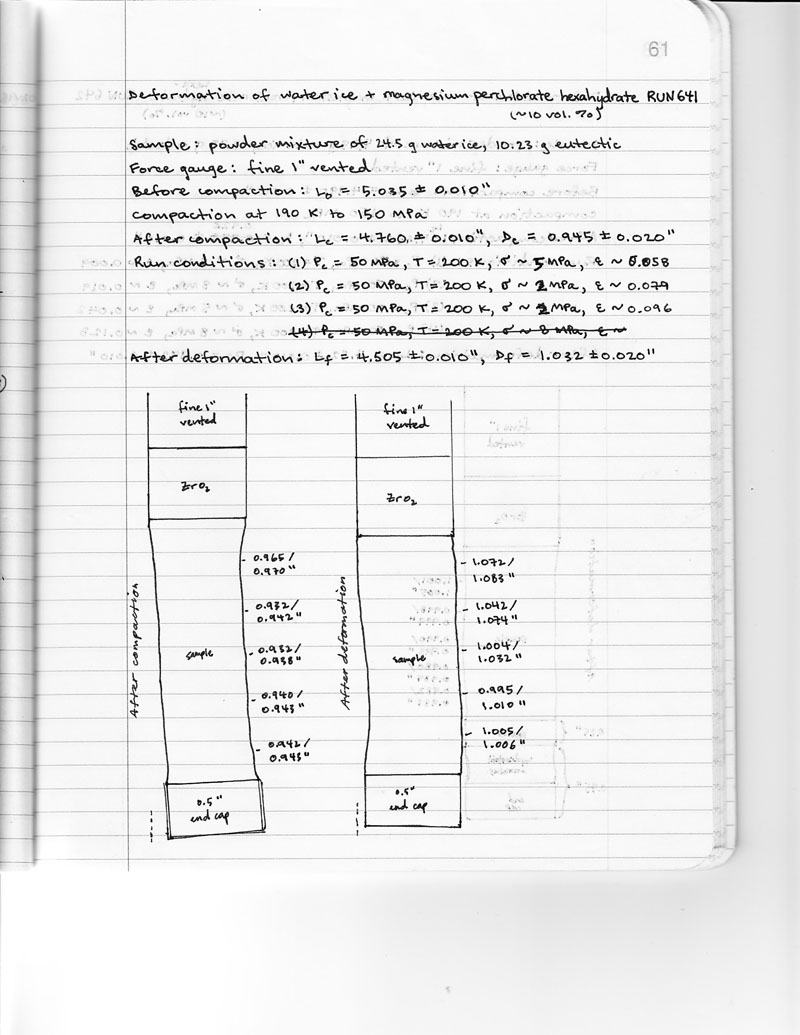 61
Deformation of water ice + magnesium perchlorate hexahydrate RUN 641
(~10 vol. %)
Sample: powder mixture of 24.5 g water ice, 10.23 g eutectic
Force gauge: fine 1" vented
Before compaction: L₀ = 5.035 ± 0.010"
compaction at 190 K to 150 MPa
After compaction: Lc = 4.760 ± 0.010", Dc = 0.945 ± 0.020"
Run conditions: (1) Pc = 50 MPa, T = 200 K, σ ~ 5 MPa, ε ~ 0.058
(2) Pc = 50 MPa, T = 200 K, σ ~ 2 MPa, ε ~ 0.079
(3) Pc = 50 MPa, T = 200 K, σ ~ MPa, ε ~ 0.096
(4) Pc = 50 MPa, T = 200 K, σ ~ 8 MPa, ε ~
After deformation: Lf = 4.505 ± 0.010", Df = 1.032 ± 0.020"
fine 1"
vented
ZrO₂
0.965/
0.970"
0.932/
0.942"
0.932/
0.938"
0.940/
0.943"
0.942/
0.943"
sample
After compaction
0.5"
end cap
fine 1"
vented
ZrO₂
1.072/
1.083"
1.042/
1.074"
1.004/
1.032"
0.995/
1.010"
1.005/
1.006"
sample
After deformation
0.5"
end cap